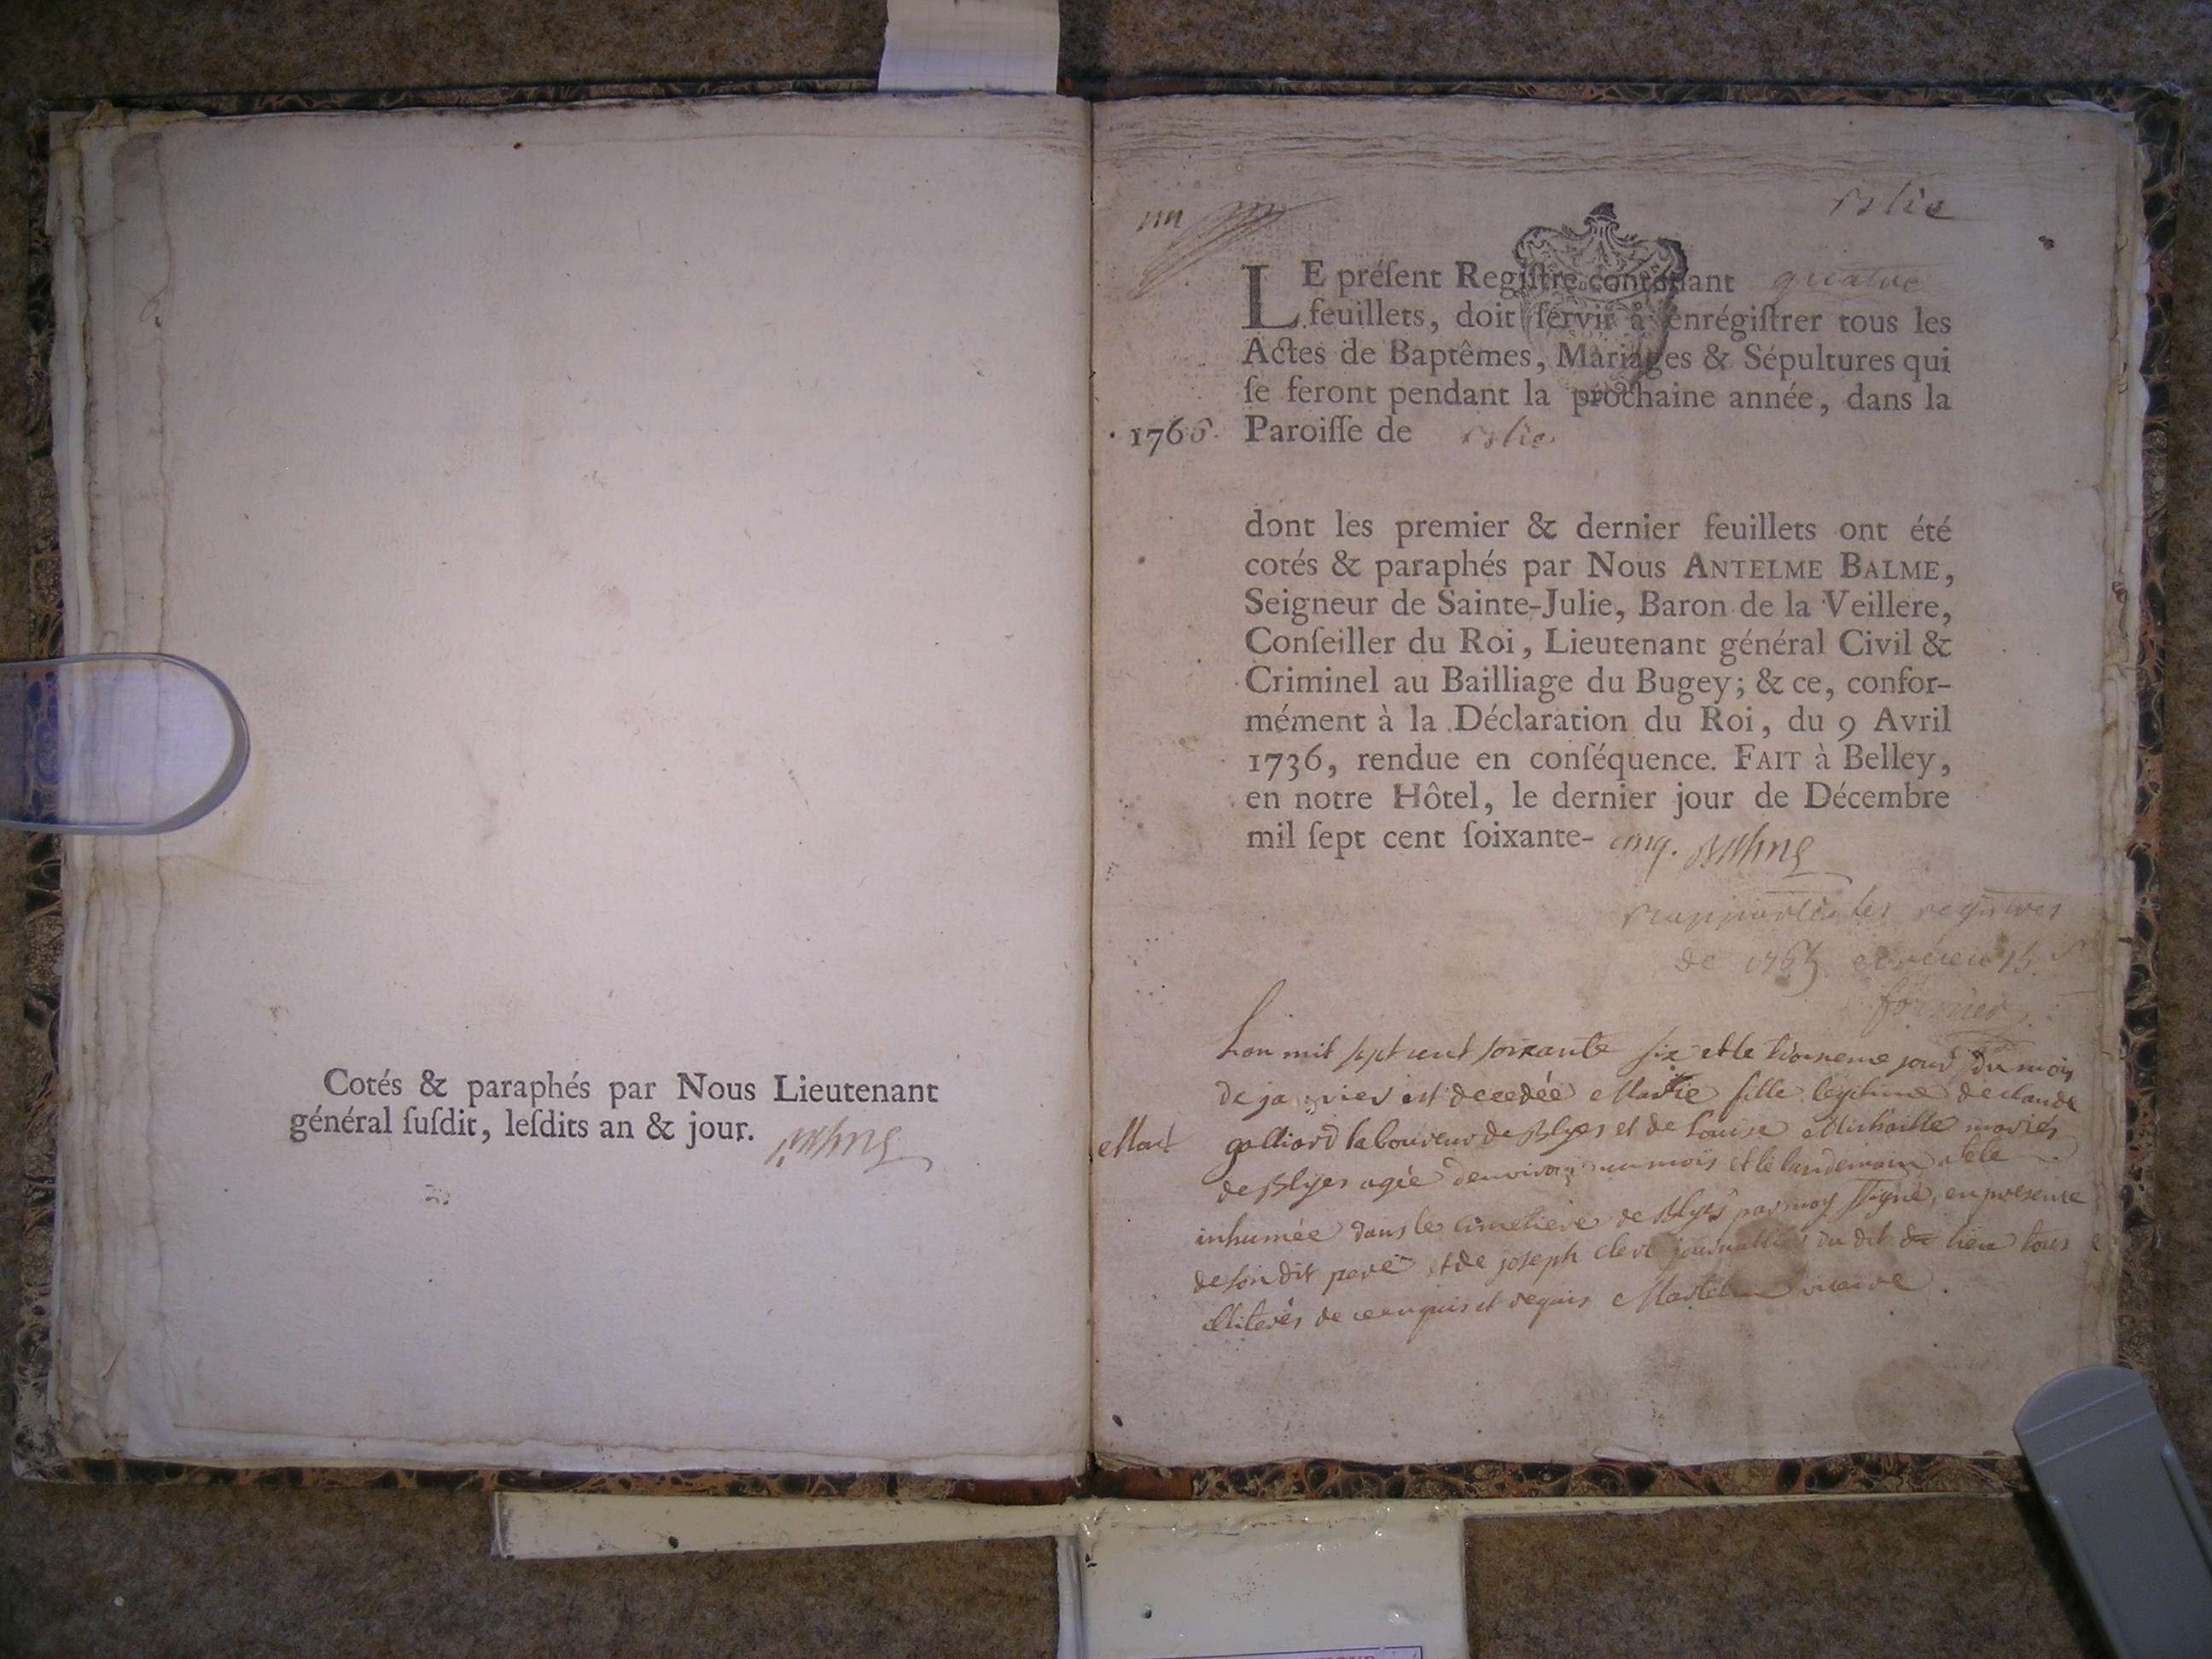 Cotés & paraphés par Nous Lieutenant
général ſuſdit, leſdits an & jour.
LE préſent Regiſtre contenant quatre
feuillets, doit ſervir à enrégiſtrer tous les
Actes de Baptêmes, Mariages & Sépultures qui
ſe feront pendant la prochaine année, dans la
1766. Paroiſſe de
dont les premier & dernier feuillets ont été
cotés & paraphés par Nous ANTELME BALME,
Seigneur de Sainte-Julie, Baron de la Veillere,
Conſeiller du Roi, Lieutenant général Civil &
Criminel au Bailliage du Bugey; & ce, confor-
mément à la Déclaration du Roi, du 9 Avril
1736, rendue en conſéquence. FAIT à Belley,
en notre Hôtel, le dernier jour de Décembre
mil ſept cent ſoixante- cinq. Balme
les registres
de
Lan mil sept cent soixante six et le troisieme jour du mois
de janvier est decedée Marie fille legitime de claude
galliard laboureur de Blyes et de Louise mariés
de Blyes agée denviron un mois et le landemain
inhumée dans le cimetiere de Blyes par moy signé, en presence
de son dit pere et de joseph clerc journallier du dit lieu tous
illiterés de ce enquis et requis vicaire